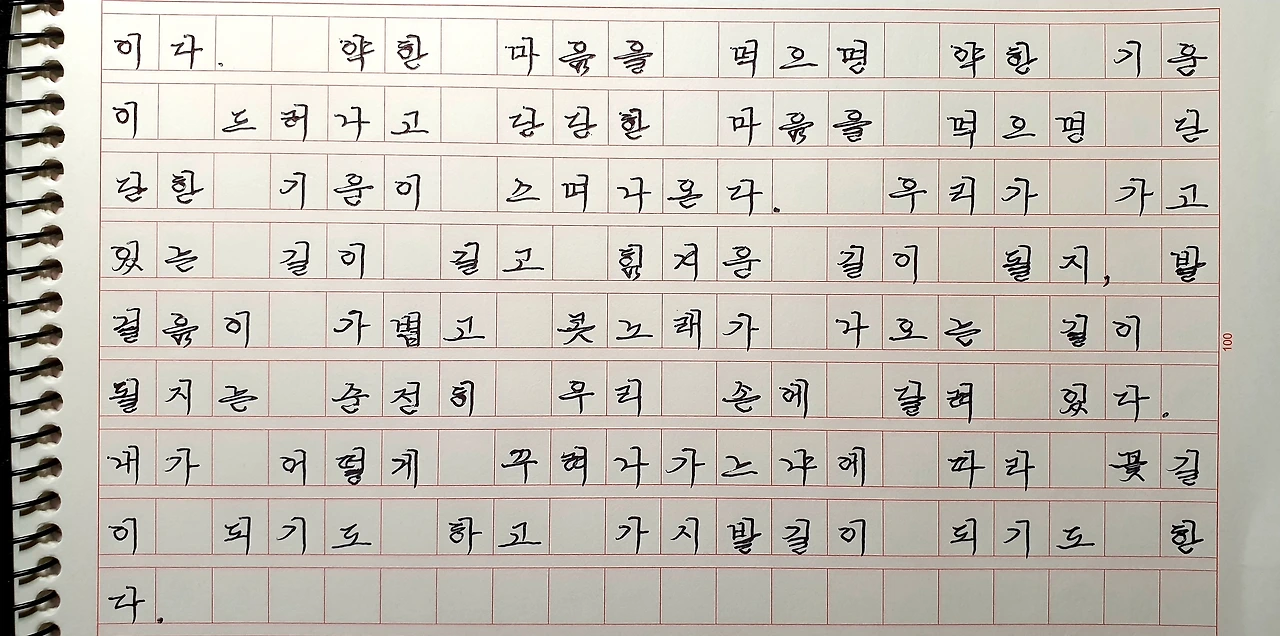 이다. 약한 마음을 먹으면 약한 기운
이 드러나고 단단한 마음을 먹으면 단
단한 기운이 스며나온다. 우리가 가고
있는 길이 길고 힘겨운 길이 될지, 발
걸음이 가볍고 콧노래가 나오는 길이
100
될지는 순전히 우리 손에 달려 있다.
내가 어떻게 꾸려나가느냐에 따라 꽃길
이 되기도 하고 가시발길이 되기도 한
다.